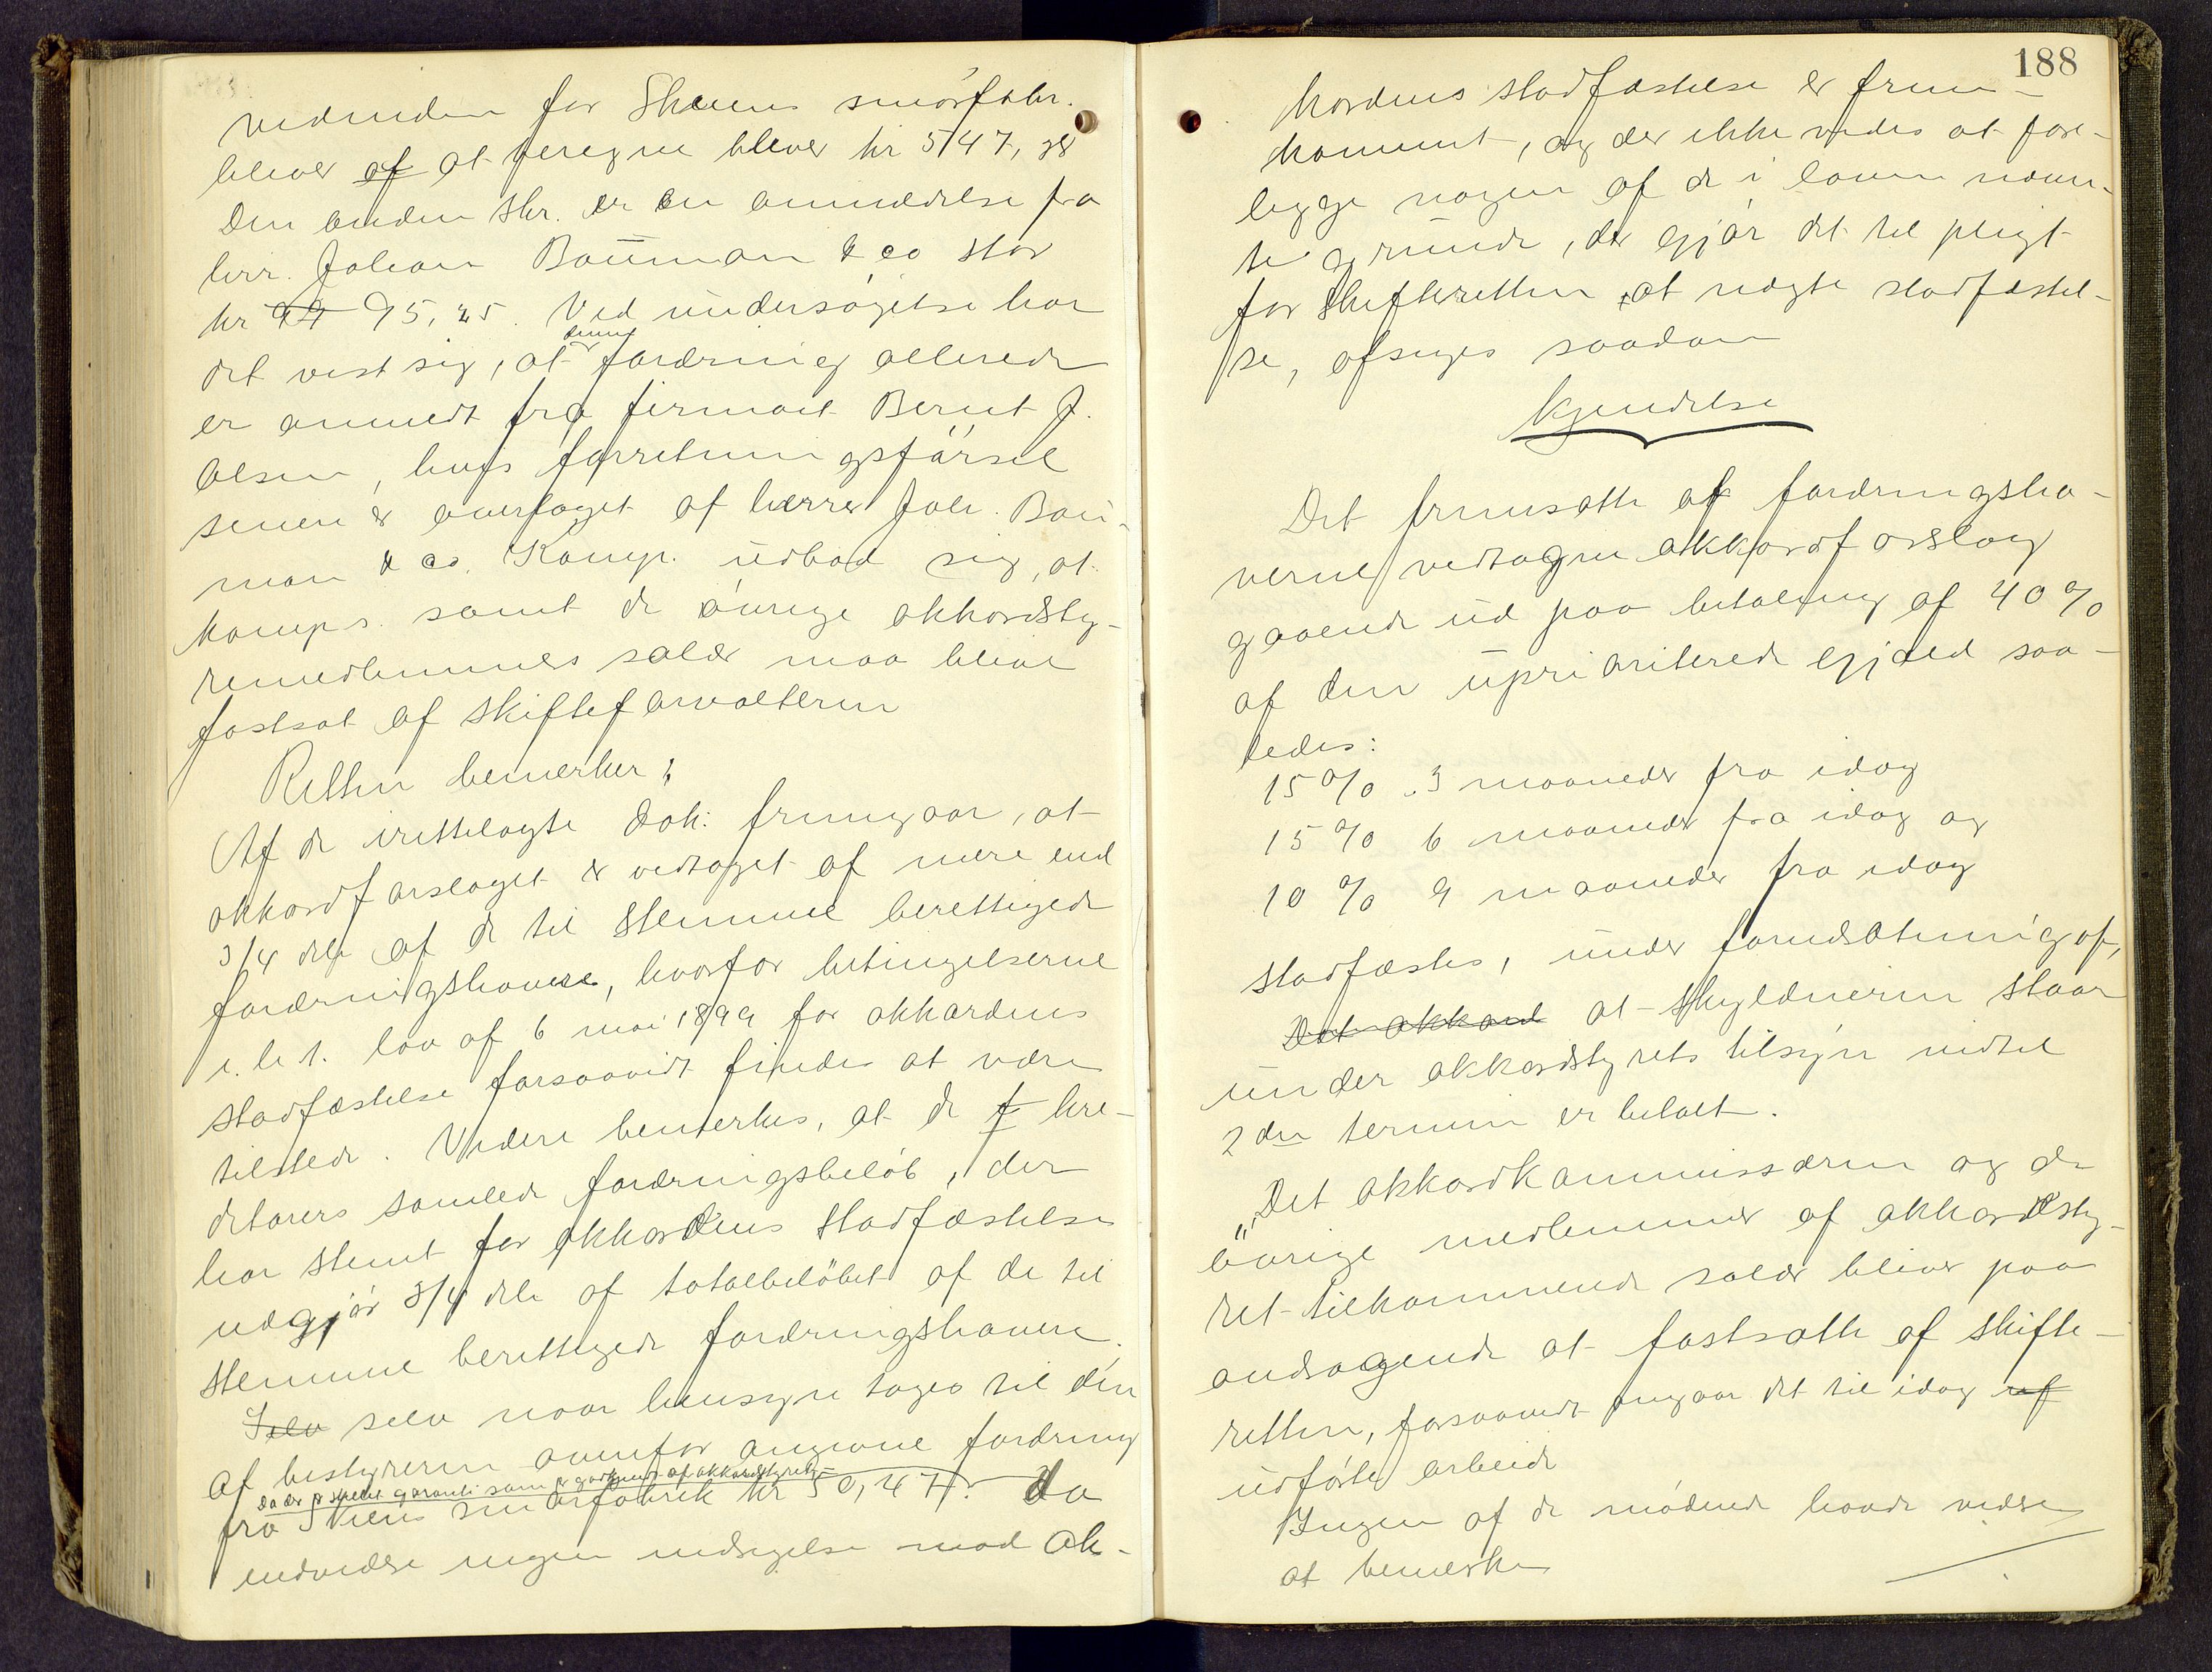 vedrinden for Skiens smörfabr.
bliver af at beregne bliver kr 5147, 98
Den anden skr. er en anmeldelse fra
hrr. Johan Bauman & co stor
kr 95,25. Ved undersøgelse har
det vist sig, at denne fordring allerede
er anmeldt fra firmaet Bernt J.
Olsen, hvis forretningsförsel
senere er overtaget af herrer Joh. Bau-
man & co. Komp. udbad sig, at
komps. samt de övrige akkordsty-
remedlemmers salær maa blive
fastsat af skifteforvalteren
Retten bemerker:
Af de irettelagte dok: fremgaar, at
akkordforslaget er vedtaget af mere end
3/4 dele af de til stemme berettigede
fordringshavere, hvorfor betingelserne
i. h. t. lov af 6 mai 1899 for akkordens
stadfæstelse forsaavidt findes at være
tilstede. Videre bemerkes, at de f kre-
ditorers samlede fordringsbelöb, der
har stemt for akkordens stadfæstelse
udgjör 3/4 dele af totalbelöbet af de til
stemme berettigede fordringshavere.
Selv selv naar hensyn tages til den
af bestyreren ovenfor angivne fordring
da der er stillet garanti som er godkjent af akkordstyret
fra Skiens smörfabrik kr 50,47. da
endvidere ingen indsigelse mod ak-
188
kordens stadfæstelse er frem-
kommet, og der ikke vides at fore-
ligge nogen af de i loven nævn-
te grunde, der gjör det til pligt
for skifteretten at nægte stadfæstel-
se, afsiges saadan
Kjendelse
Det fremsatte af fordringsha-
verne vedtagne akkordforslag
gaaende ud paa betaling af 40 %
af den uprioriterede gjæld saa-
ledes:
15 % 3 maaneder fra idag
15 % 6 maaneder fra idag og
10 % 9 maaneder fra idag
stadfæstes, under forudsætning af,
Det akkord at skyldneren staar
under akkordstyrets tilsyn indtil
2den termin er betalt.
Det akkordkommissæren og de
övrige medlemmer af akkordsty-
ret tilkommende salær bliver paa
andragende at fastsætte af skifte-
retten, forsaavidt angaar det til idag af
udförte arbeide
Ingen af de mödende havde videre
at bemerke